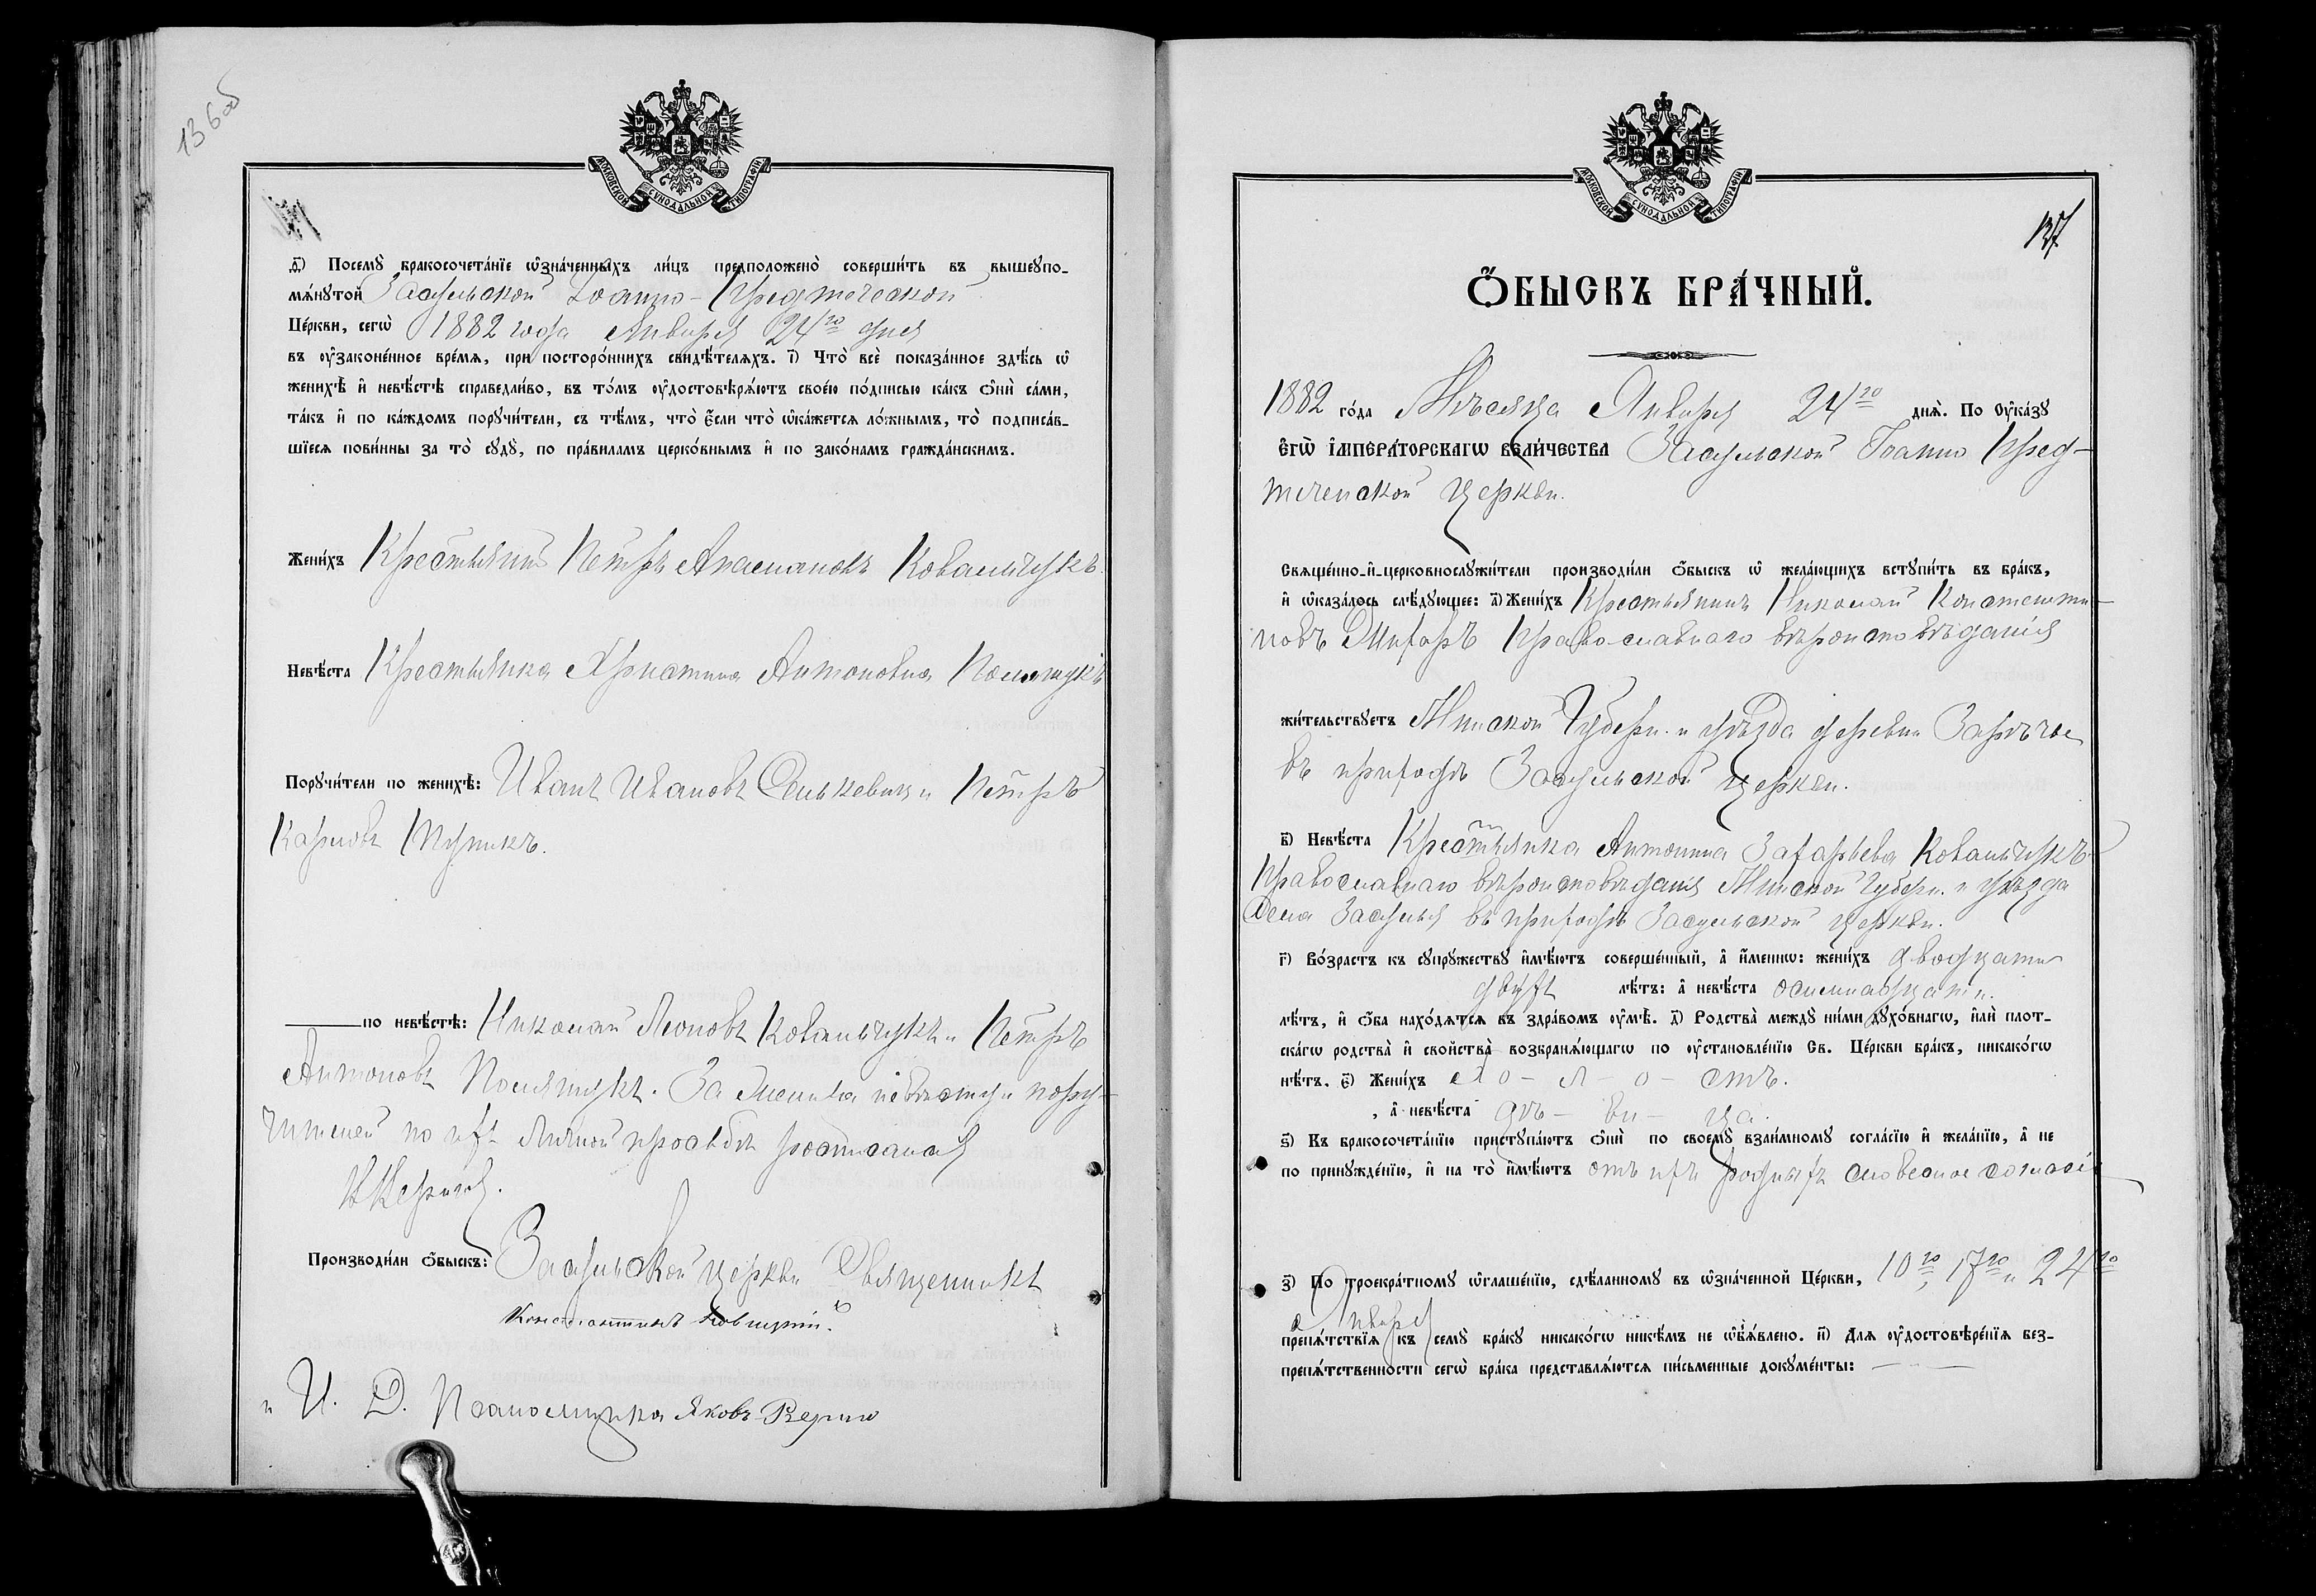 136об
МОСКОВСКОЙ СѴНОДАЛЬНОЙ ТИПОГРАФІИ
ѳ҃) Посемꙋ̀ бракосочета́нїе ѡ҆зна́ченныхъ ли́цъ предположено̀ соверши́ть въ вышеꙋпо-
мѧ́нꙋтой Засульской Іоанно-Предтеческой
Це́ркви, сегѡ̀ 1882 года Января 24го дня
въ ᲂу҆законе́нное вре́мѧ, при посторо́ннихъ свидѣ́телѧхъ. і҃) Что̀ всѐ показа́нное здѣ́сь ѡ҆
женихѣ̀ и҆ невѣ́стѣ справедли́во, въ то́мъ ᲂу҆достовѣрѧ́ютъ свое́ю по́дписью ка́къ ѻ҆нѝ са́ми,
та́къ и҆ по ка́ждомъ порꙋчи́тели, съ тѣ́мъ, что̀ є҆́сли что̀ ѡ҆ка́жется ло́жнымъ, то̀ подписа́в-
шїеся пови́нны за то̀ сꙋдꙋ̀, по пра́виламъ церко́внымъ и҆ по зако́намъ гражда́нскимъ.
Жени́хъ Крестьянинъ Петръ Апанановъ Ковальчукъ.
Невѣ́ста Крестьянка Христина Антоновна Полящукъ
Порꙋчи́тели по женихѣ̀: Иванъ Ивановъ Санкевичъ и Петръ
Карповъ
по невѣ́стѣ: Николай Леоновъ Ковальчукъ и Петръ
Антоновъ Полящукъ. За жениха невѣсту и пору-
чителей по ихъ личной просьбѣ росписался
Производи́ли ѻ҆́быскъ: Засульской церкви Священникъ
Константинъ
и И. Д. Псаломщика Яковъ
МОСКОВСКОЙ СѴНОДАЛЬНОЙ ТИПОГРАФІИ
137
Ѻ҆́БЫСКЪ БРА́ЧНЫЙ.
1882 го́да Мѣсяца Января 24го днѧ̀. По Оу҆ка́зꙋ
Е҆ГѠ̀ И҆МПЕРА́ТОРСКАГѠ ВЕЛИ́ЧЕСТВА Засульской Іоанно Пред-
теченской церкви.
Свѧще́нно-и҆-церковнослꙋжи́тели производи́ли ѻ҆́быскъ ѡ҆ жела́ющихъ встꙋпи́ть въ бра́къ,
и҆ ѡ҆каза́лось слѣ́дꙋющее: а҃) Жени́хъ Крестьянинъ Николай Константи-
новъ Православнаго вѣроисповѣданія
жи́тельствꙋетъ Минской Губерн. и уѣзда деревни Зарѣчье
въ приходѣ Засульской церкви.
в҃) Невѣ́ста Крестьянка Антонина Захарьева Ковальчукъ
Православнаго вѣроисповѣданія Минской Губерн. и уѣзда
Села Засулья въ приходѣ Засульской церкви.
г҃) Во́зрастъ къ сꙋпрꙋ́жествꙋ и҆мѣ́ютъ соверше́нный, а҆ и҆́меннѡ: жени́хъ двадцати
двухъ лѣ́тъ: а҆ невѣ́ста осемнадцати.
лѣ́тъ, и҆ ѻ҆́ба нахо́дѧтся въ здра́вомъ ᲂу҆мѣ̀. д҃) Родства̀ междꙋ̀ ни́ми дꙋхо́внагѡ, и҆лѝ плот-
ска́гѡ родства̀ и҆ сво́йства возбранѧ́ющагѡ по ᲂу҆становле́нїю Св. Це́ркви бра́къ, никако́гѡ
нѣ́тъ. є҃) Жени́хъ хо- л- о- стъ.
, а҆ невѣ́ста дѣ- ви- ца.
ѕ҃) Къ бракосочета́нїю пристꙋпа́ютъ ѻ҆нѝ по своемꙋ̀ взаи́мномꙋ согла́сїю и҆ жела́нїю, а҆ не
по принꙋжде́нїю, и҆ на то̀ и҆мѣ́ютъ отъ ихъ родныхъ словесное согласіе
з҃) По троекра́тномꙋ ѡ҆глаше́нїю, сдѣ́ланномꙋ въ ѡ҆зна́ченной Це́ркви, 10го, 17го и 24го
Января
препѧ́тствїѧ къ семꙋ̀ бра́кꙋ никако́гѡ никѣ́мъ не ѡ҆б̾ѧ́влено. и҃) Для ᲂу҆достовѣре́нїѧ без-
препѧ́тственности сегѡ̀ бра́ка представлѧ́ются пи́сьменные докꙋме́нты: